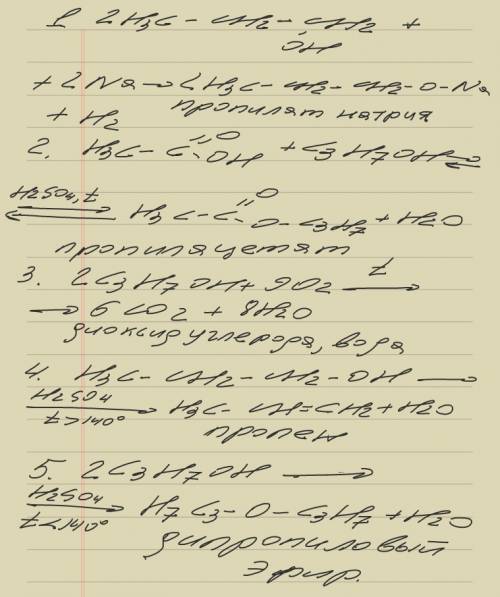 1. 2H3C - CH2 - CH2 +
OH
+ 2Na → 2H3C - CH2 - CH2-O-Na
пропилят натрия
+ H2
2. H3C - C =O OH + C3H7OH ⇄
H2SO4, t ⇄ H3C-C =O O-C3H7 + H2O
пропилацетят
3. 2C3H7OH + 9O2 t →
→ 6CO2 + 8H2O
диоксид углерода, вода
4. H3C - CH2 - CH2 - OH →
H2SO4 t>140° → H3C - CH=CH2 + H2O
пропен
5. 2C3H7OH →
H2SO4 t<140° → H7C3-O-C3H7 + H2O
дипропиловый
эфир.